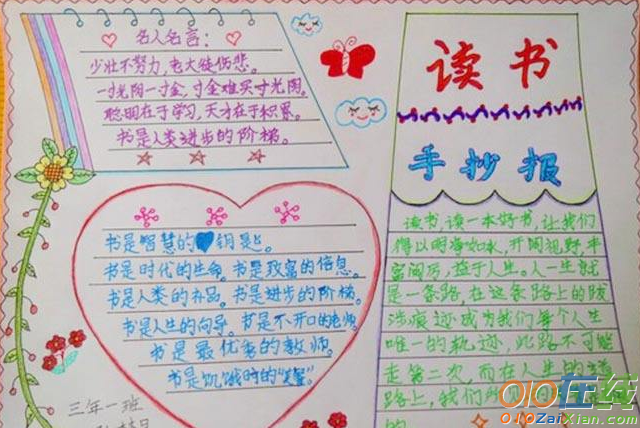 名人名言：
少壮不努力，老大徒伤悲。
一寸光阴一寸金，寸金难买寸光阴。
聪明在于学习，天才在于积累。
书是人类进步的阶梯。
书是智慧的钥匙。
书是时代的生命。书是致富的信息。
书是人类的补品。书是进步的阶梯。
书是人生的向导。书是不开口的老师。
书是最优秀的教师。
书是饥饿时的"美餐"。
三年一班
读书
手抄报
读书,读一本好书,让我们
得以明净如水,开阔视野,丰
富阅历,益于人生。人一生就
是一条路,在这条路上的跋
涉痕迹成为我们每个人生
唯一的轨迹,此路不可能
走第二次,而在人生的道
路上,我们所
的
010在线
010ZaiXian.com